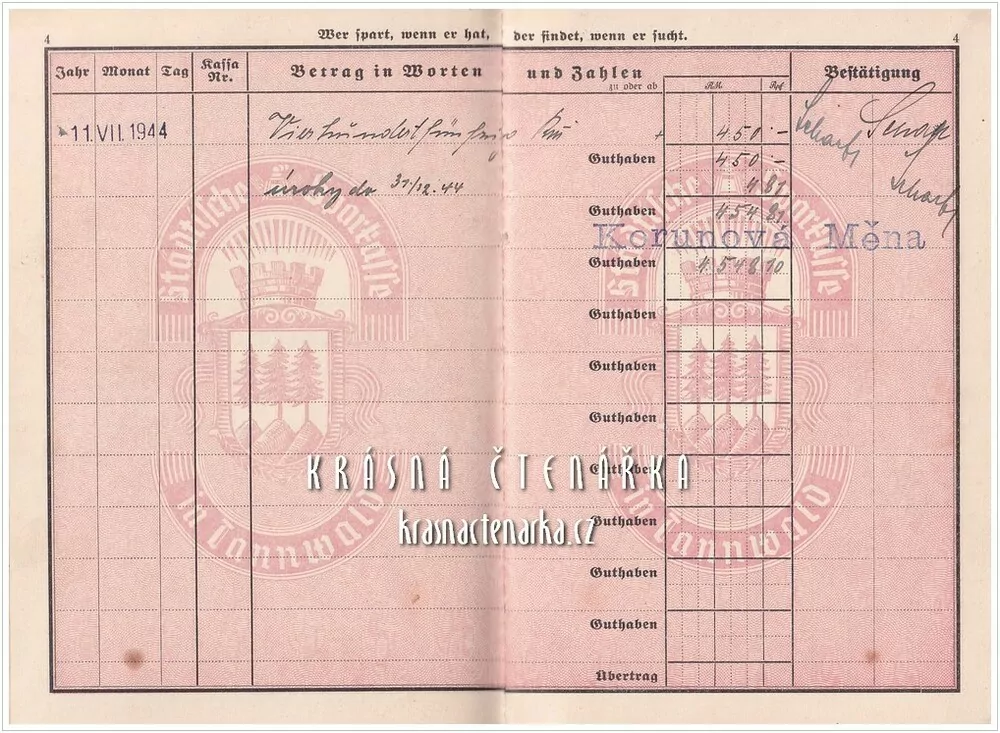 4 Wer spart, wenn er hat, der findet, wenn er sucht. 4
Jahr Monat Tag Kassa Nr. Betrag in Worten und Zahlen zu oder ab RM Rpf Bestätigung
11. VII. 1944 Vierhundertfünfzig + 450 -
Guthaben 450 -
úroky do 31/12.44 4 81
Guthaben 454 81
Korunová Měna
Guthaben 4.548 10
Guthaben
Guthaben
Guthaben
Guthaben
Guthaben
Guthaben
Guthaben
Übertrag
Scharf
Scharf
Städtische Sparkasse
in Tannwald
Städtische Sparkasse
in Tannwald
KRÁSNÁ ČTENÁŘKA
krasnactenarka.cz